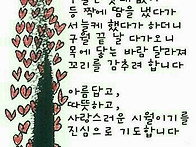 등 짝에 땀을 냈다가
서늘케 했다가 하더니
구월 끝 날 다가오니
목에 닿는 바람 달라져
꼬리를 감추려 합니다
아름답고,
따뜻하고,
사랑스러운 시월이기를
진심으로 기도합니다